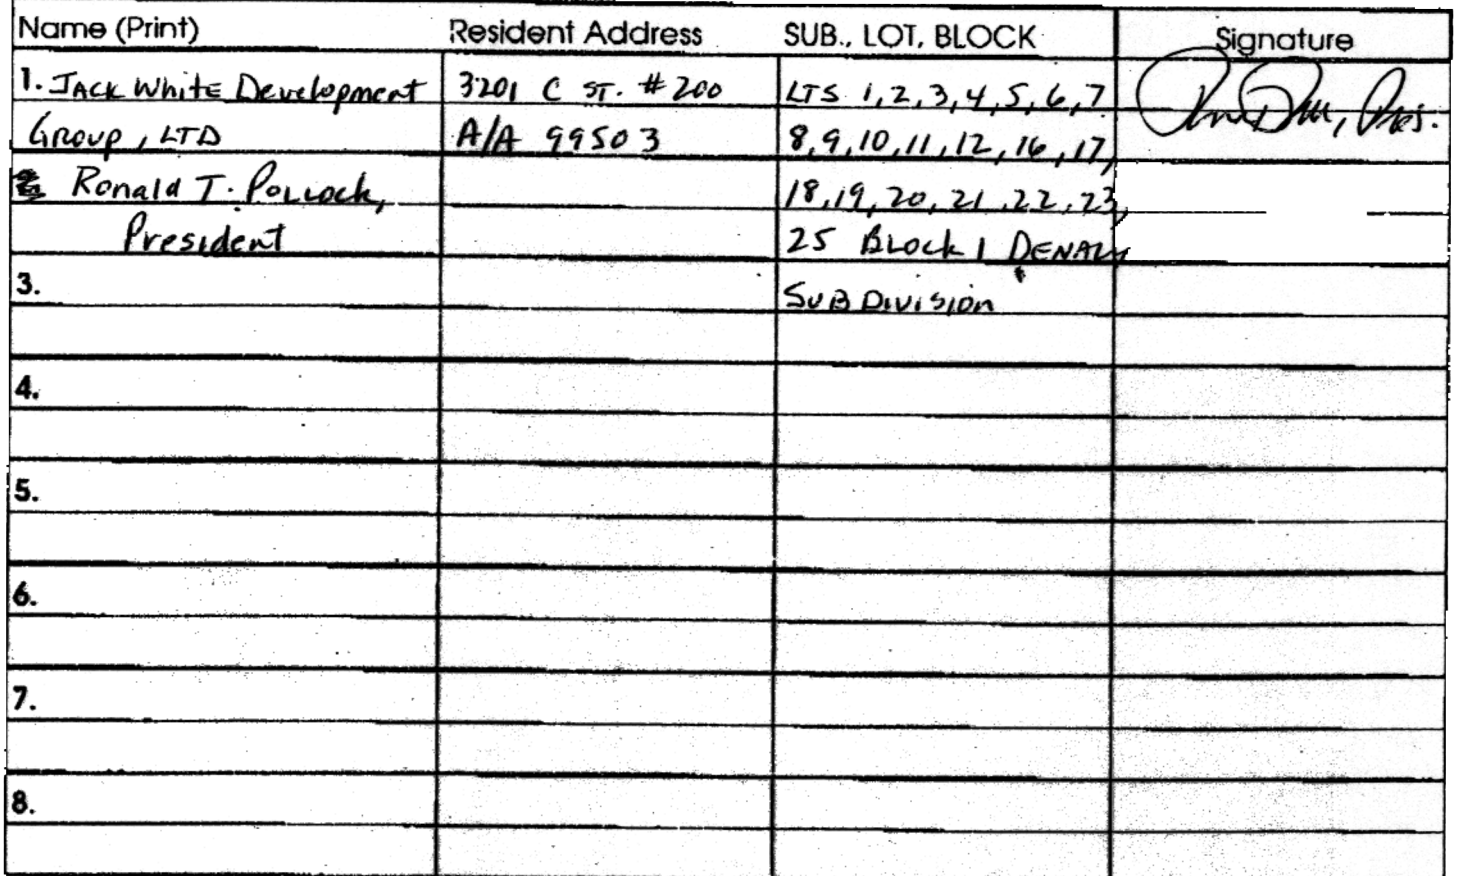 Name (Print) Resident Address SUB., LOT, BLOCK Signature
1. JACK White Development 3201 C ST. #200 LTS 1,2,3,4,5,6,7
Group, LTD A/A 99503 8,9,10,11,12,16,17,
Ronald T. Pollock, 18,19,20,21,22,23,
President 25 Block 1 DENALI
3. SUBDivision
4.
5.
6.
7.
8.